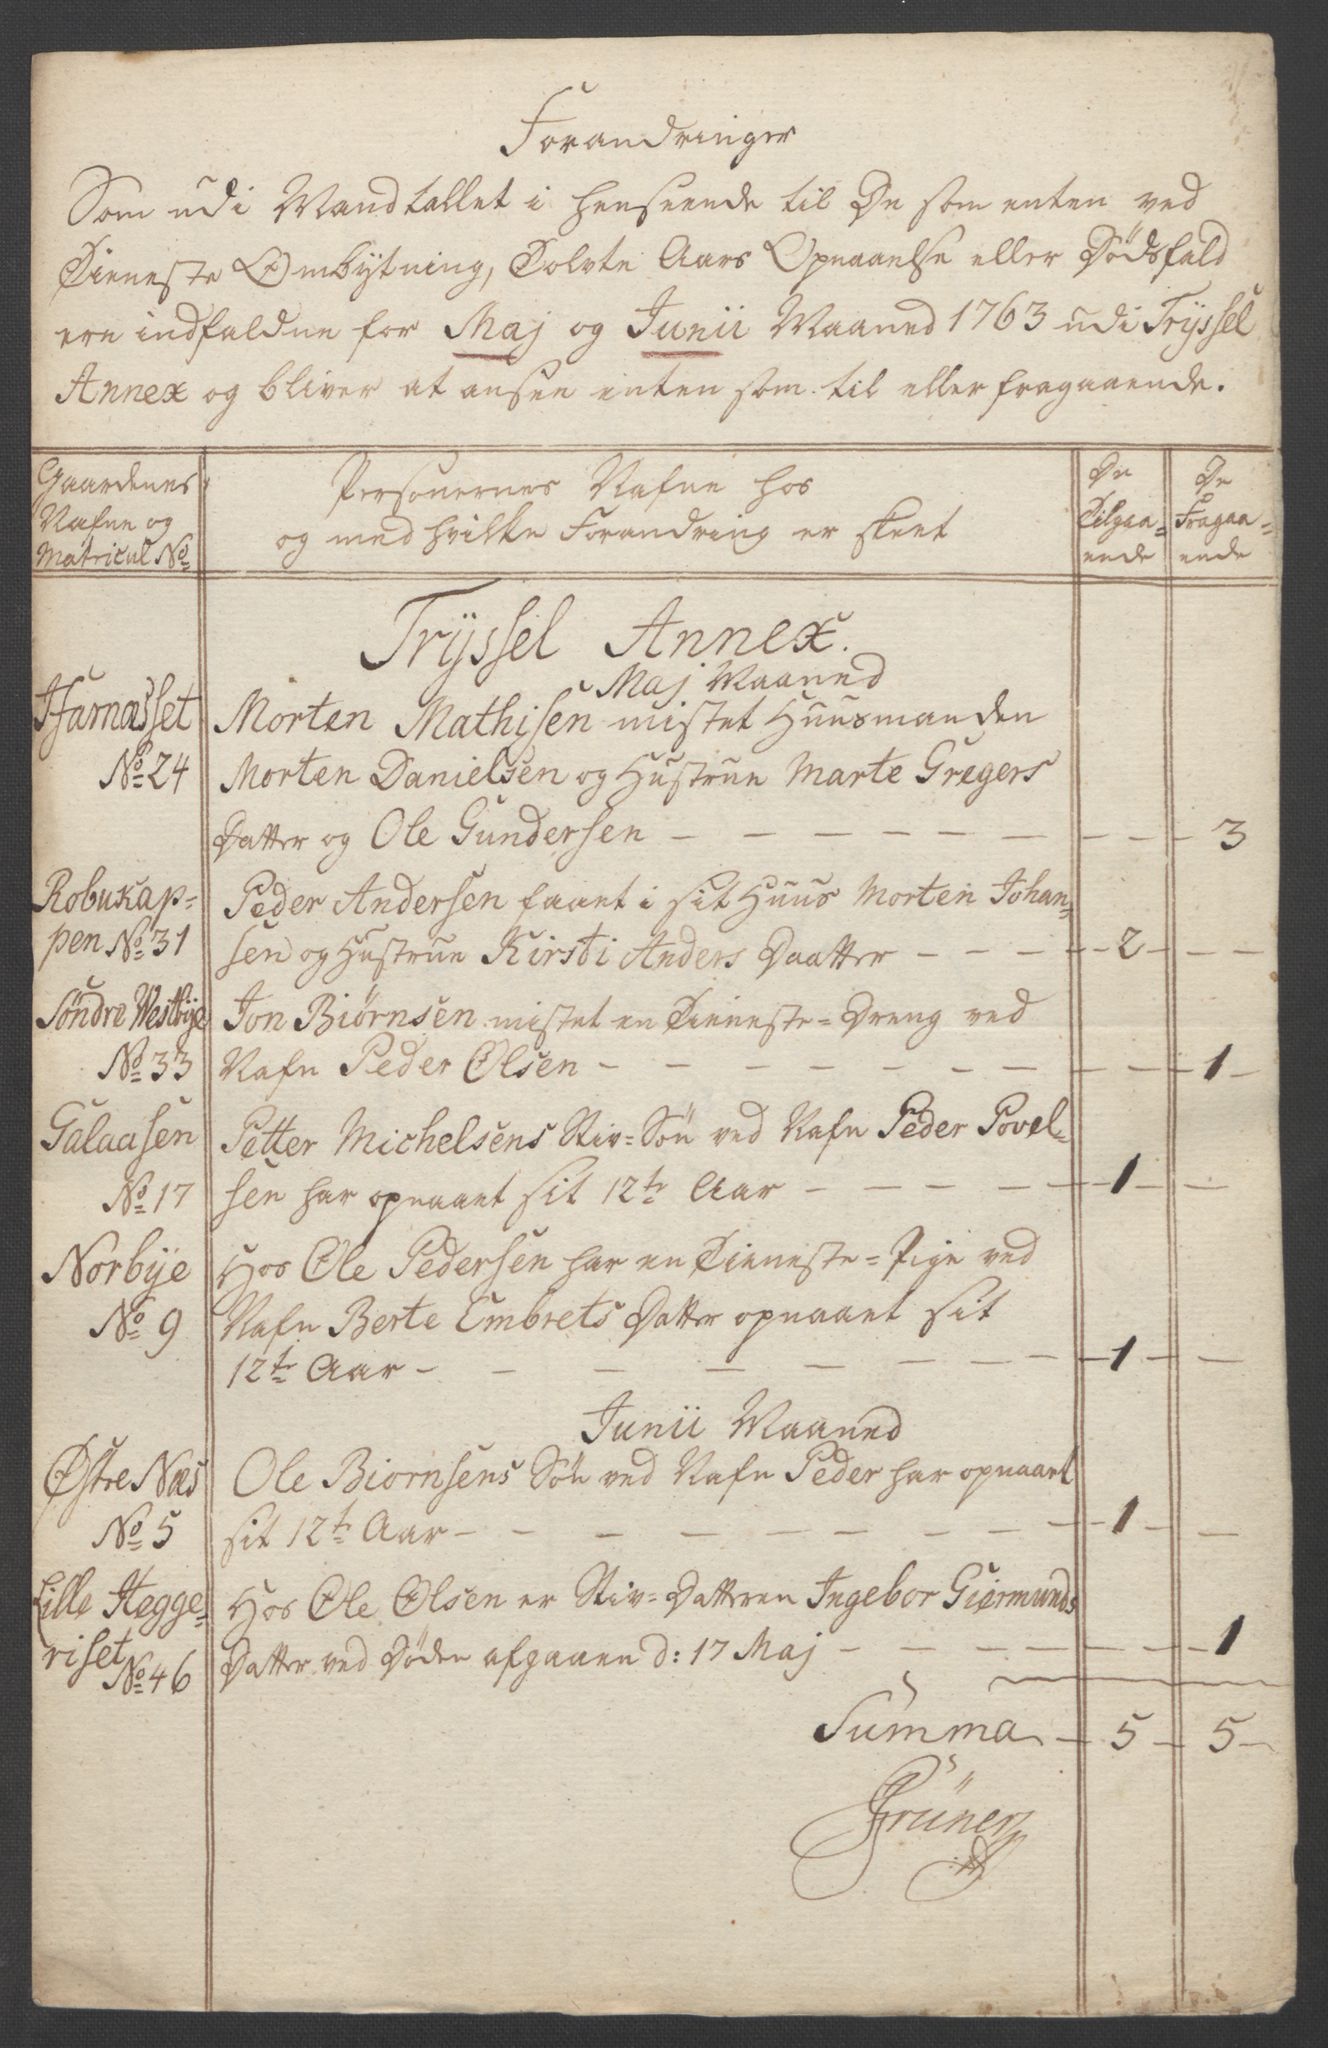 Forandringer
Som udi Mandtallet i henseende til De som enten ved
Tieneste Ombytning, Tolvte Aars Opnaaelse eller Dödsfald
ere indfaldne for Maj og Junii Maaned 1763 udi Trÿssel
Annex og bliver at ansee enten som til eller fragaaende.
Gaardenes Nafne og Matricul No
Personernes Nafne hos
og med hvilke Forandring er skeet
De Tilgaa=ende
De Fragaa=ende
Trÿssel Annex.
Maj Maaned
Morten Mathisen mistet Huusmanden
No 24 Morten Danielsen og Hustrue Marte Gregers
Datter og Ole Gundersen — — — — — — — 3
Robukap= Peder Andersen faaet i sit Huus Morten Johan=
pen No 31 sen og Hustrue Kirsti Anders Daatter — — — 2 — —
Söndre Westbÿe Jon Biörnsen mistet en Tieneste=Dreng ved
No 33 Nafn Peder Olsen — — — — — — — — 1 —
Galaasen Petter Michelsens Stiv=Sön ved Nafn Peder Povel=
No 17 sen har opnaaet sit 12te Aar — — — — 1 — —
Norbÿe Hos Ole Pedersen har en Tieneste=Pige ved
No 9 Nafn Berte Embrets Datter opnaaet sit
12te Aar — — — — — — — 1 — —
Junii Maaned
Østre Næs Ole Biornsens Sön ved Nafn Peder har opnaaet
No 5 sit 12te Aar — — — — — — — 1 — —
Lille Hegge= Hos Ole Olsen er Stiv=Datteren Ingebor Giermunds
riset No 46 Datter ved Döden afgaaen d: 17 Maj — — — — — 1
Summa — 5 — 5 —
Grüner